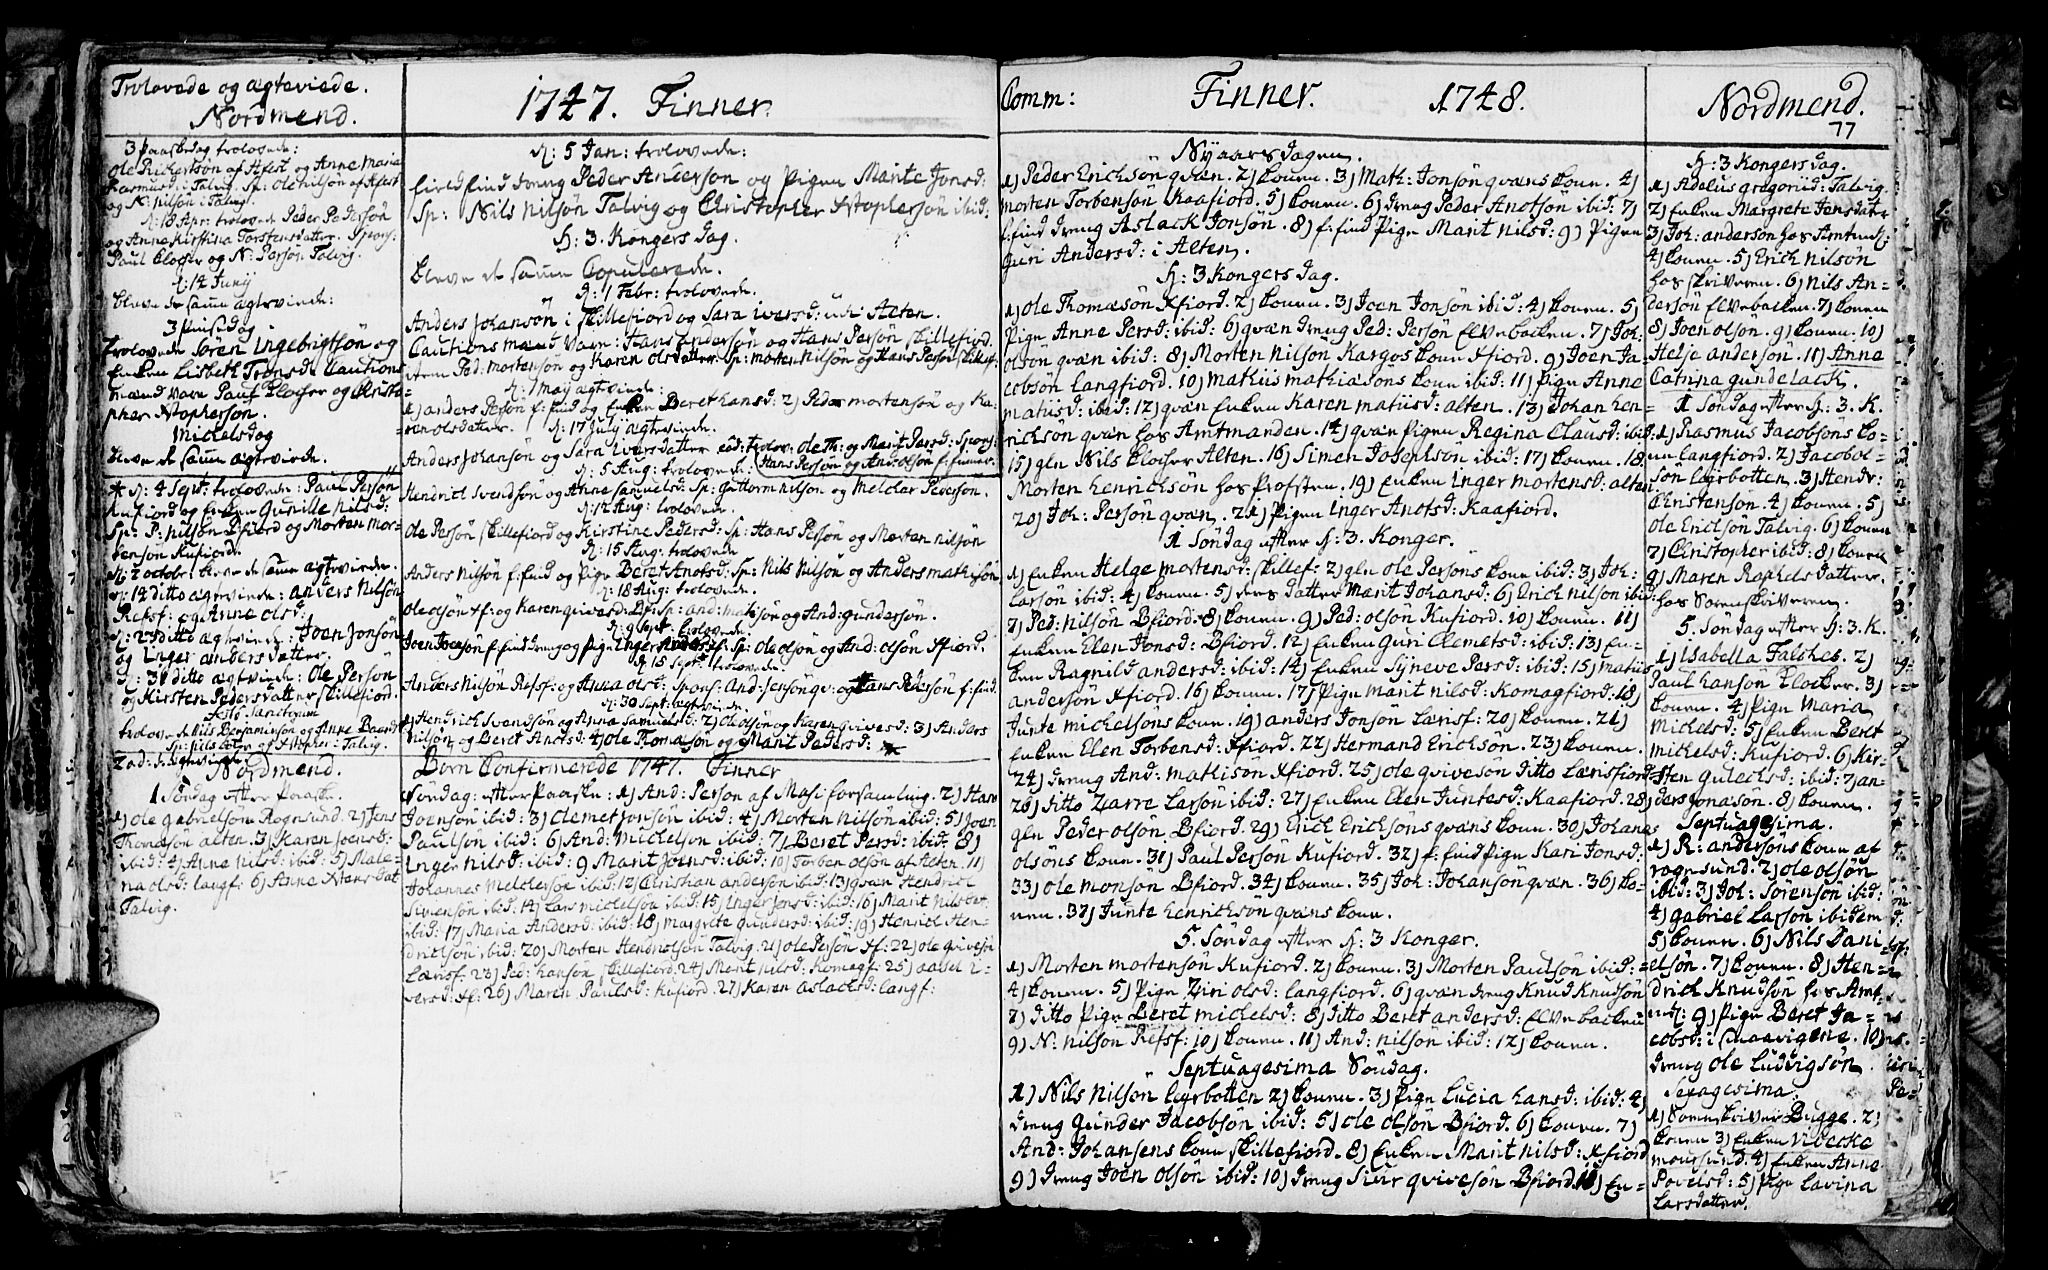 Trolovede og ægteviede.
Nordmend.
3 Paaskedag trolovede:
Ole Rickertsøn af Refest og Anne Maria
Rasmusd: i Talvig. Sp: Ole Nilsøn af Refest
og N: Nilsøn i Talvig.
d: 18 Apr: trolovede Peder Pedersøn
og Anne Kirstina Torstensdatter. Spons:
Paul Clocker og N: Persøn Talvig.
d: 14 Junij
bleve de samme ægteviede:
3 Pinsedag
trolovede Sören Ingebrigtsön og
Enken Lisbeth Tronsd: Cautions
mænd vare Paul Clocker og Christo=
pher Xstophersøn.
Michelsdag
bleve de samme ægteviede.
d: 4 Sept: trolovede: Paul Persøn
Kufiord og Enken Gunille Nilsd:
Sp: P: Nilsøn Bfiord og Morten Mor=
tensøn Kufiord.
d: 2 octobr: bleve de samme ægteviede.
d: 14 ditto ægteviede: Anders Nilsøn
Refsf: og Anne Olsd:
d: 23 ditto ægteviede: Joen Jonsøn
og Inger Andersdatter.
d: 31 ditto ægteviede: Ole Persøn
og Kirsten Pedersdatter Skillefiord.
Festo Sanctorum
trolovede Nils Benjaminsøn og Anne Baard
Sp: Nils og Xstopher i Talvig.
2 ad: ægteviede
Nordmend.
1 Søndag efter Paaske.
1) Ole Gabrielsøn Rognsund. 2) Jens
Thomæsøn Alten. 3) Karen Joensd:
ibid: 4) Anne Nilsd: ibid: 5) Male=
na Olsd: Langf: 6) Anne Xtensdat
Talvig.
1747. Finner.
d: 5 Jan: trolovede:
Fieldfind dreng Peder Andersøn og Pigen Marite Jonsd:
Sp: Nils Nilsön Talvig og Christopher Xstophersön ibid:
H: 3. Kongers dag.
bleve de samme Copulerede.
d: 1 Febr: trolovede.
Anders Johansön i Skillefiord og Sara Iversd: udi Alten.
Cautions mænd vare: Hans Andersøn og Hans Persøn Skillefiord.
item Ped: Mortensøn og Karen Olsdatter. Sp: Morten Nilsön og Hans Persøn Skillef:
d: 7 Maij ægteviede:
1) Anders Persøn f: find og Enken Beret Hansd: 2) Peder Mortensøn og Ka=
ren Olsdatter. d: 17 July ægteviede.
Anders Johansøn og Sara Iversdatter eod: trolov: Ole Th: og Marit Persd: Spons:
d: 5 Aug: trolovede: Hans Persøn og And: Olsøn f: finner.
Hendrick Svendsøn og Anne Samuelsd: Sp: Guttorm Nilsøn og Melcker Pedersøn.
d: 12 Aug: trolovede.
Ole Persøn Skillefiord og Kirstine Pedersd: Sp: Hans Persøn og Morten Nilsøn
d: 15 Aug: trolovede
Anders Nilsøn f: find og Pigen Beret Anotsd: Sp: Nils Nilsøn og Anders Mathisøn
d: 18 Aug: trolovede.
Ole Olsøn Xf: og Karen Qvivesd: Bf: Sp: And: Matisøn og And: Gundersøn.
d: 9 Sept: trolovede
Joen Joensøn f: find dreng og Pigen Inger Andersd: Sp: Ole Olsøn og And: Olsøn Xfiord.
d: 15 Sept: trolovede:
Anders Nilsøn Refsf: og Anna Olsd: Spons: And: Jensøn qv: og Hans Pedersøn f: find.
d: 30 Sept: ægteviede
1) Hendrich Svendsøn og Anna Samuelsd: 2) Ole Olsøn og Karen Qvivesd: 3) Anders
Nilsøn og Beret Anotsd: 4) Ole Thomasøn og Marit Pedersd:
Børn Confirmerede 1747. Finner
Søndag: efter Paaske: 1) And: Persøn af Masi forsamling. 2) Hans
Joensøn ibid: 3) Clemet Jonsøn ibid: 4) Morten Nilsön ibid: 5) Joen
Paulsøn ibid: 6) And: Michelsøn ibid: 7) Beret Persd: ibid: 8)
Inger Nilsd: ibid: 9 Marit Joensd: ibid: 10) Torben Olsøn af Alten. 11)
Johannes Melckersøn ibid: 12) Christian Andersøn ibid: 13) qvæn Hendrick
Sivensøn ibid: 14 Lars Michelsøn ibid: 15) Inger Jonsd: ibid: 16) Marit Nilsdat:
ibid: 17) Maria Andersd: ibid: 18) Margrete Gundersd: ibid: 19) Henrick Hen=
dricksön ibid: 20) Morten Hendricksøn Talvig. 21) Ole Persøn Xf: 22) Ole Qvivesøn
Lærisf: 23) Ped: Hansøn Skillefiord. 24) Marit Nilsd: Komagf: 25) Aasel I=
versd: Xf: 26) Maren Paulsd: Kufiord. 27) Karen Aslachsd: Langf:
Comm: Finner. 1748.
Nyaarsdagen.
1) Peder Ericksön qvæn. 2) Konen. 3) Math: Jonsön qvæns Kone. 4)
Morten Torbensøn Kaafiord. 5) Konen. 6) Dreng Peder Anotsøn ibid: 7)
f: find dreng Aslack Jonsøn. 8) f: find Pigen Marit Nilsd: 9) Pigen
Guri Andersd: i Alten.
H: 3 Kongers dag.
1) Ole Thomæsøn Xfiord. 2) Konen. 3) Joen Jonsøn ibid: 4) Konen. 5)
Pigen Anne Persd: ibid: 6) qvæn dreng Ped: Persøn Elvebacken. 7) Joh:
Olsøn qvæn ibid: 8) Morten Nilsøn Kargos Kone Xfiord. 9) Joen Ja=
cobsøn Langfiord. 10) Matiis Mathiæsøns Kone ibid: 11) Pigen Anne
Matiisd: ibid: 12) qvæn Enken Karen Matiisd: Alten. 13) Johan Hen=
ricksøn qvæn hos Amtmanden. 14) qvæn Pigen Regina Clausd: ibid:
15) gln Nils Clocker Alten. 16) Simen Josephson ibid: 17) Konen. 18
Morten Henricksøn hos Profsten. 19) Enken Inger Mortensd: Alten
20) Joh: Persøn qvæn. 21) Pigen Inger Anotsd: Kaafiord.
1 Søndag efter H: 3. Konger.
1) Enken Helge Mortensd: Skillef: 2) gln Ole Persøns Kone ibid: 3) Joh:
Larsøn ibid: 4) Konen. 5) ders datter Marit Johansd: 6) Erick Nilsøn ibid:
7) Ped: Nilsøn Bfiord. 8) Konen. 9) Ped: Olsøn Kufiord. 10) Konen. 11)
Enken Elen Jonsd: Bfiord. 12) Enken Guri Clemetsd: ibid: 13) En=
ken Ragnild Andersd: ibid: 14) Enken Syneve Persd: ibid: 15) Matiis
Andersøn Xfiord. 16) Konen. 17) Pigen Marit Nilsd: Komagfiord. 18)
Junte Michelsøns Kone. 19) Anders Jonsøn Lærisf: 20) Konen. 21)
Enken Elen Torbensd: Xfiord. 22) Hermand Ericksøn. 23) Konen.
24) Dreng And: Mathisøn Xfiord. 25) Ole Qvivesøn ditto Lærisfiord
26) ditto Zarre Larsøn ibid: 27) Enken Elen Juntesd: Kaafiord. 28)
gln Peder Olsøn Bfiord. 29) Erick Ericksøns qvæns Kone. 30) Johanes
Olsøns Kone. 31) Paul Persøn Kufiord. 32) f: find Pigen Kari Jonsd:
33) Ole Monsøn Bfiord. 34) Konen. 35) Joh: Johansøn qvæn. 36) Ko=
nen. 37) Junte Henricksøn qvæns Kone.
5. Søndag efter H: 3 Konger.
1) Morten Mortensøn Kufiord. 2) Konen. 3) Morten Paulsøn ibid:
4) Konen. 5) Pigen Ziri Olsd: Langfiord. 6) qvæn dreng Knud Knudsøn
7) ditto Pigen Beret Michelsd: 8) ditto Beret Andersd: Elvebacken
9) N: Nilsøn Refsf: 10) Konen. 11) And: Nilsøn ibid: 12) Konen.
Septuagesima Søndag.
1) Nils Nilsön Lerbotten 2) Konen. 3) Pigen Lucia Hansd: ibid: 4)
dreng Gunder Jacobsøn ibid: 5) Ole Olsøn Bfiord. 6) Konen. 7)
And: Johansens Kone Skillefiord. 8) Enken Marit Nilsd: Xfiord
9) Dreng Joen Olsøn ibid: 10) Dreng Siur Qvivesøn Bfiord. 11) En=
Nordmend.
77
H: 3 Kongers dag.
1) Adelus Gregorid: Talvig.
2) Enken Margrete Jensdatr
3) Joh: Andersøn hos Amtmd:
4) Konen. 5) Erick Nilsøn
hos skriveren. 6) Nils An=
dersøn Elvebacken. 7) Konen
8) Joen Olson. 9) Konen. 10)
Helje Andersøn. 11) Anna
Catrina Gundelach.
1 Søndag efter H: 3. K.
1) Rasmus Jacobsøns Ko=
nen Langfiord. 2) Jacob Ol=
søn Lerbotten. 3) Hendr:
Christensøn. 4) Konen. 5)
Ole Ericksøn Talvig. 6) Konen
7) Christopher ibid: 8) Konen
9) Maren Raphelsdatter.
hos Sorenskriveren.
5. Søndag efter H: 3. K.
1) Isabella Falches. 2)
Paul Hanson Clocker. 3)
Konen. 4) Pigen Maria
Michelsd: 5) Enken Beret
Michelsd: Kufiord. 6) Kir=
sten Gulechsd: ibid: 7) An=
ders Jonasøn. 8) Konen.
Septuagesima.
1) R: Andersøns Kone af
Rognsund. 2) Ole Olsøn
ibid: 3) Joh: Sørensøn ibid:
4) Gabriel Larsøn ibidem
5) Konen. 6) Nils Dani=
elsøn. 7) Konen. 8) Hen=
drick Knudsøn hos Amt
md: 9) Pigen Beret Ja=
cobsd: i Smaavigene. 10)
dreng Ole Ludvigsøn.
Sexagesima.
1) Sorenskriver Bugge. 2)
Konen 3) Enken Vivecke
Moursund. 4) Enken Anne
Povelsd: 5) Pigen Lavina
Larsdatter.